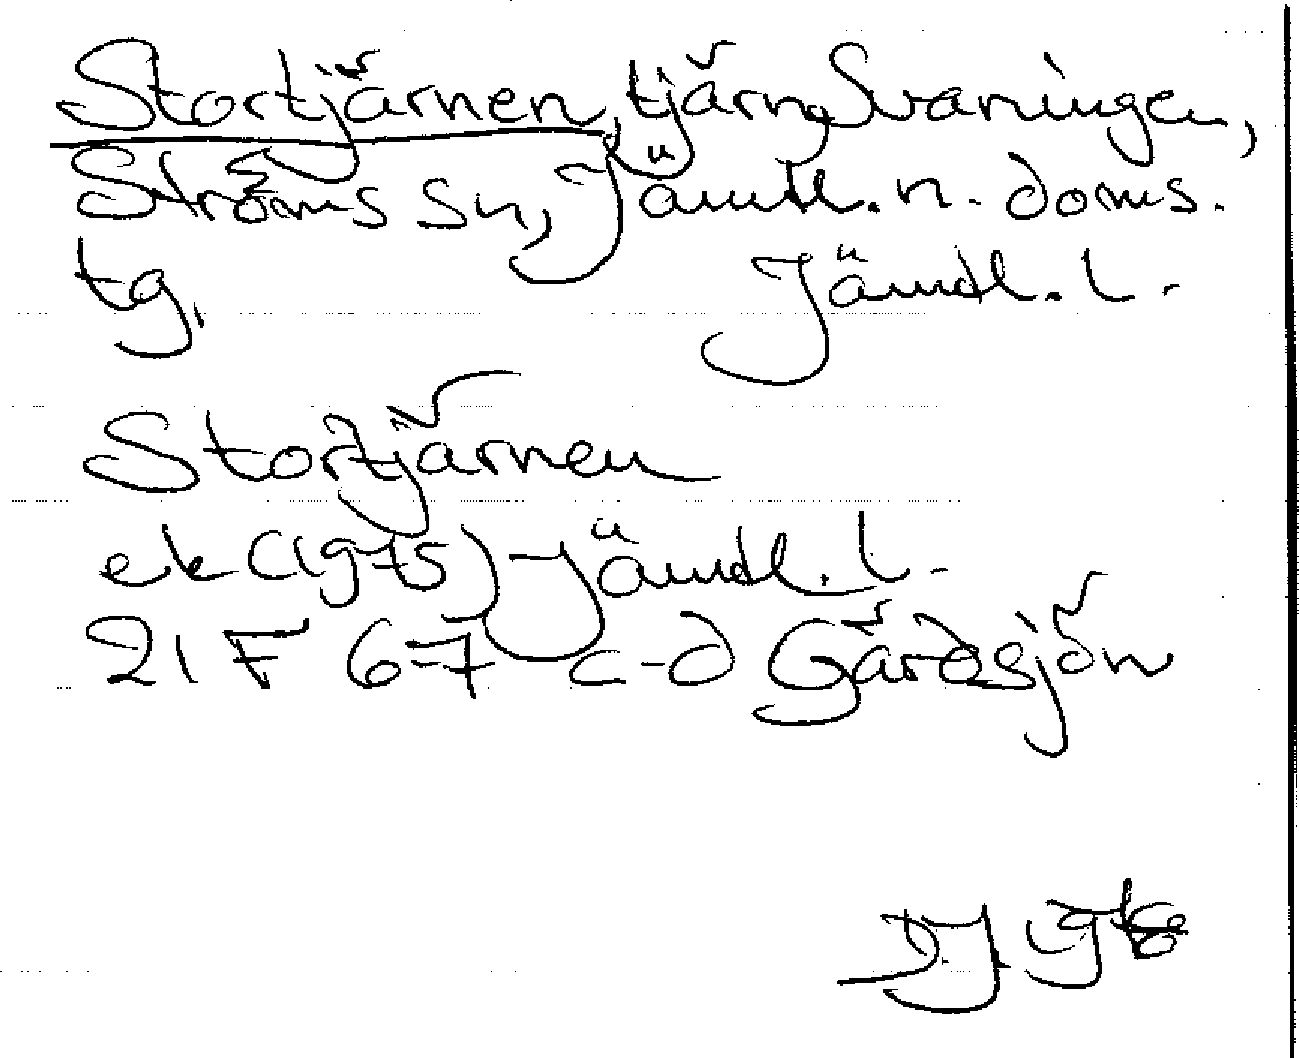 Stortjärnen, tjärn, Svaningen,
Ströms sn, Jämtl. n. doms.
tg, Jämtl. l.
Stortjärnen
ek (1975) Jämtl. l.
21 F 6-7 c-d Gårdsjön